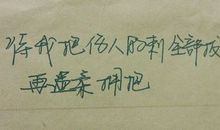 待我把伤人的刺全部拔
再温柔拥抱